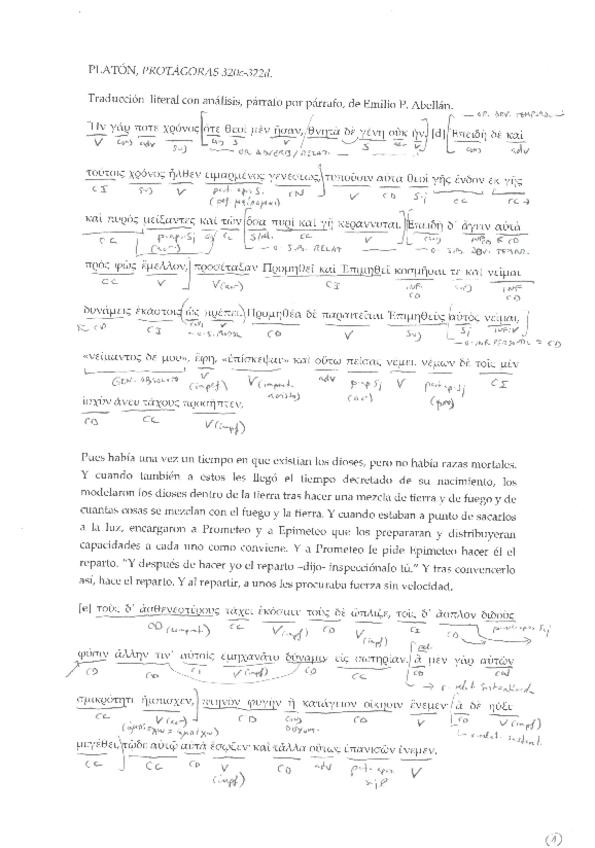 PLATÓN, PROTÁGORAS 320c-322d.
Traducción literal con análisis, párrafo por párrafo, de Emilio P. Abellán.
O. ADV. TEMPORAL
Ἦν γάρ ποτε χρόνος ὅτε θεοὶ μὲν ἦσαν, θνητὰ δὲ γένη οὐκ ἦν. [d] Ἐπειδὴ δὲ καὶ
V conj adv Suj S V O ADVERB/RELAT. S V conj adv
τούτοις χρόνος ἦλθεν εἱμαρμένος γενέσεως, τυποῦσιν αὐτὰ θεοὶ γῆς ἔνδον ἐκ γῆς
CI Suj V CN V CD Suj CC CC
καὶ πυρὸς μείξαντες καὶ τῶν ὅσα πυρὶ καὶ γῇ κεράννυται. Ἐπειδὴ δ᾽ ἄγειν αὐτὰ
CC CC V conj CD
πρὸς φῶς ἔμελλον, προσέταξαν Προμηθεῖ καὶ Ἐπιμηθεῖ κοσμῆσαί τε καὶ νεῖμαι
CC V V(aor) CI INF. CD INF CD
δυνάμεις ἑκάστοις ὡς πρέπει. Προμηθέα δὲ παραιτεῖται Ἐπιμηθεὺς αὐτὸς νεῖμαι,
CD CI CD V Suj
«νείμαντος δέ μου», ἔφη, «ἐπίσκεψαι» καὶ οὕτω πείσας νέμει. νέμων δὲ τοῖς μὲν
GEN. ABSOLUTO V (impf) V (imperat. aoristo) adv V CI
ἰσχὺν ἄνευ τάχους προσῆπτεν,
CD CC V(impf)
Pues había una vez un tiempo en que existían los dioses, pero no había razas mortales.
Y cuando también a estos les llegó el tiempo decretado de su nacimiento, los
modelaron los dioses dentro de la tierra tras hacer una mezcla de tierra y de fuego y de
cuantas cosas se mezclan con el fuego y la tierra. Y cuando estaban a punto de sacarlos
a la luz, encargaron a Prometeo y a Epimeteo que los prepararan y distribuyeran
capacidades a cada uno como conviene. Y a Prometeo le pide Epimeteo hacer él el
reparto. "Y después de hacer yo el reparto –dijo- inspecciónalo tú." Y tras convencerlo
así, hace el reparto. Y al repartir, a unos les procuraba fuerza sin velocidad,
[e] τοὺς δ᾽ ἀσθενεστέρους τάχει ἐκόσμει· τοὺς δὲ ὥπλιζε, τοῖς δ᾽ ἄοπλον διδοὺς
CC V(impf) CD V (impf) CI CD
φύσιν ἄλλην τιν᾽ αὐτοῖς ἐμηχανᾶτο δύναμιν εἰς σωτηρίαν. ἃ μὲν γὰρ αὐτῶν
CD CD CI V (impf) CD CC
σμικρότητι ἤμπισχεν, πτηνὸν φυγὴν ἢ κατάγειον οἴκησιν ἔνεμεν· ἃ δὲ ηὖξε
CC V(aor) CD CD V CD V(impf)
μεγέθει, τῷδε αὐτῷ αὐτὰ ἔσῳζεν· καὶ τἆλλα οὕτως ἐπανισῶν ἔνεμεν.
CC CC CD V (impf) CD adv V
(1)